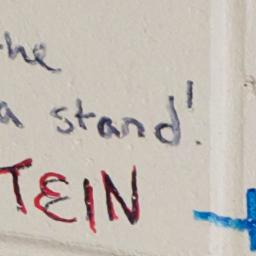 he
a stand!
TEIN